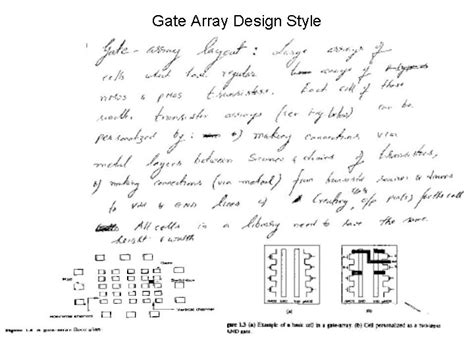 Gate Array Design Style
Gate-array layout: Large arrays of
cells that have regular arrays of
nMOS & pMOS transistors. Each cell of these
small transistor arrays (see fig below) can be
personalized by: a) making connections via
metal layers between Sources & drains of transistors,
b) making connections (via metal) from transistor sources & drains
to Vdd & GND lines (creating i/p o/p ports) for the cell
All cells in a library need to have the same
height & width
Pad
Gate
Switchbox
Horizontal channels
Vertical channel
Figure 1.4 A gate-array floorplan
(a)
(b)
gure 1.3 (a) Example of a basic cell in a gate-array. (b) Cell personalized as a two-input
AND gate.